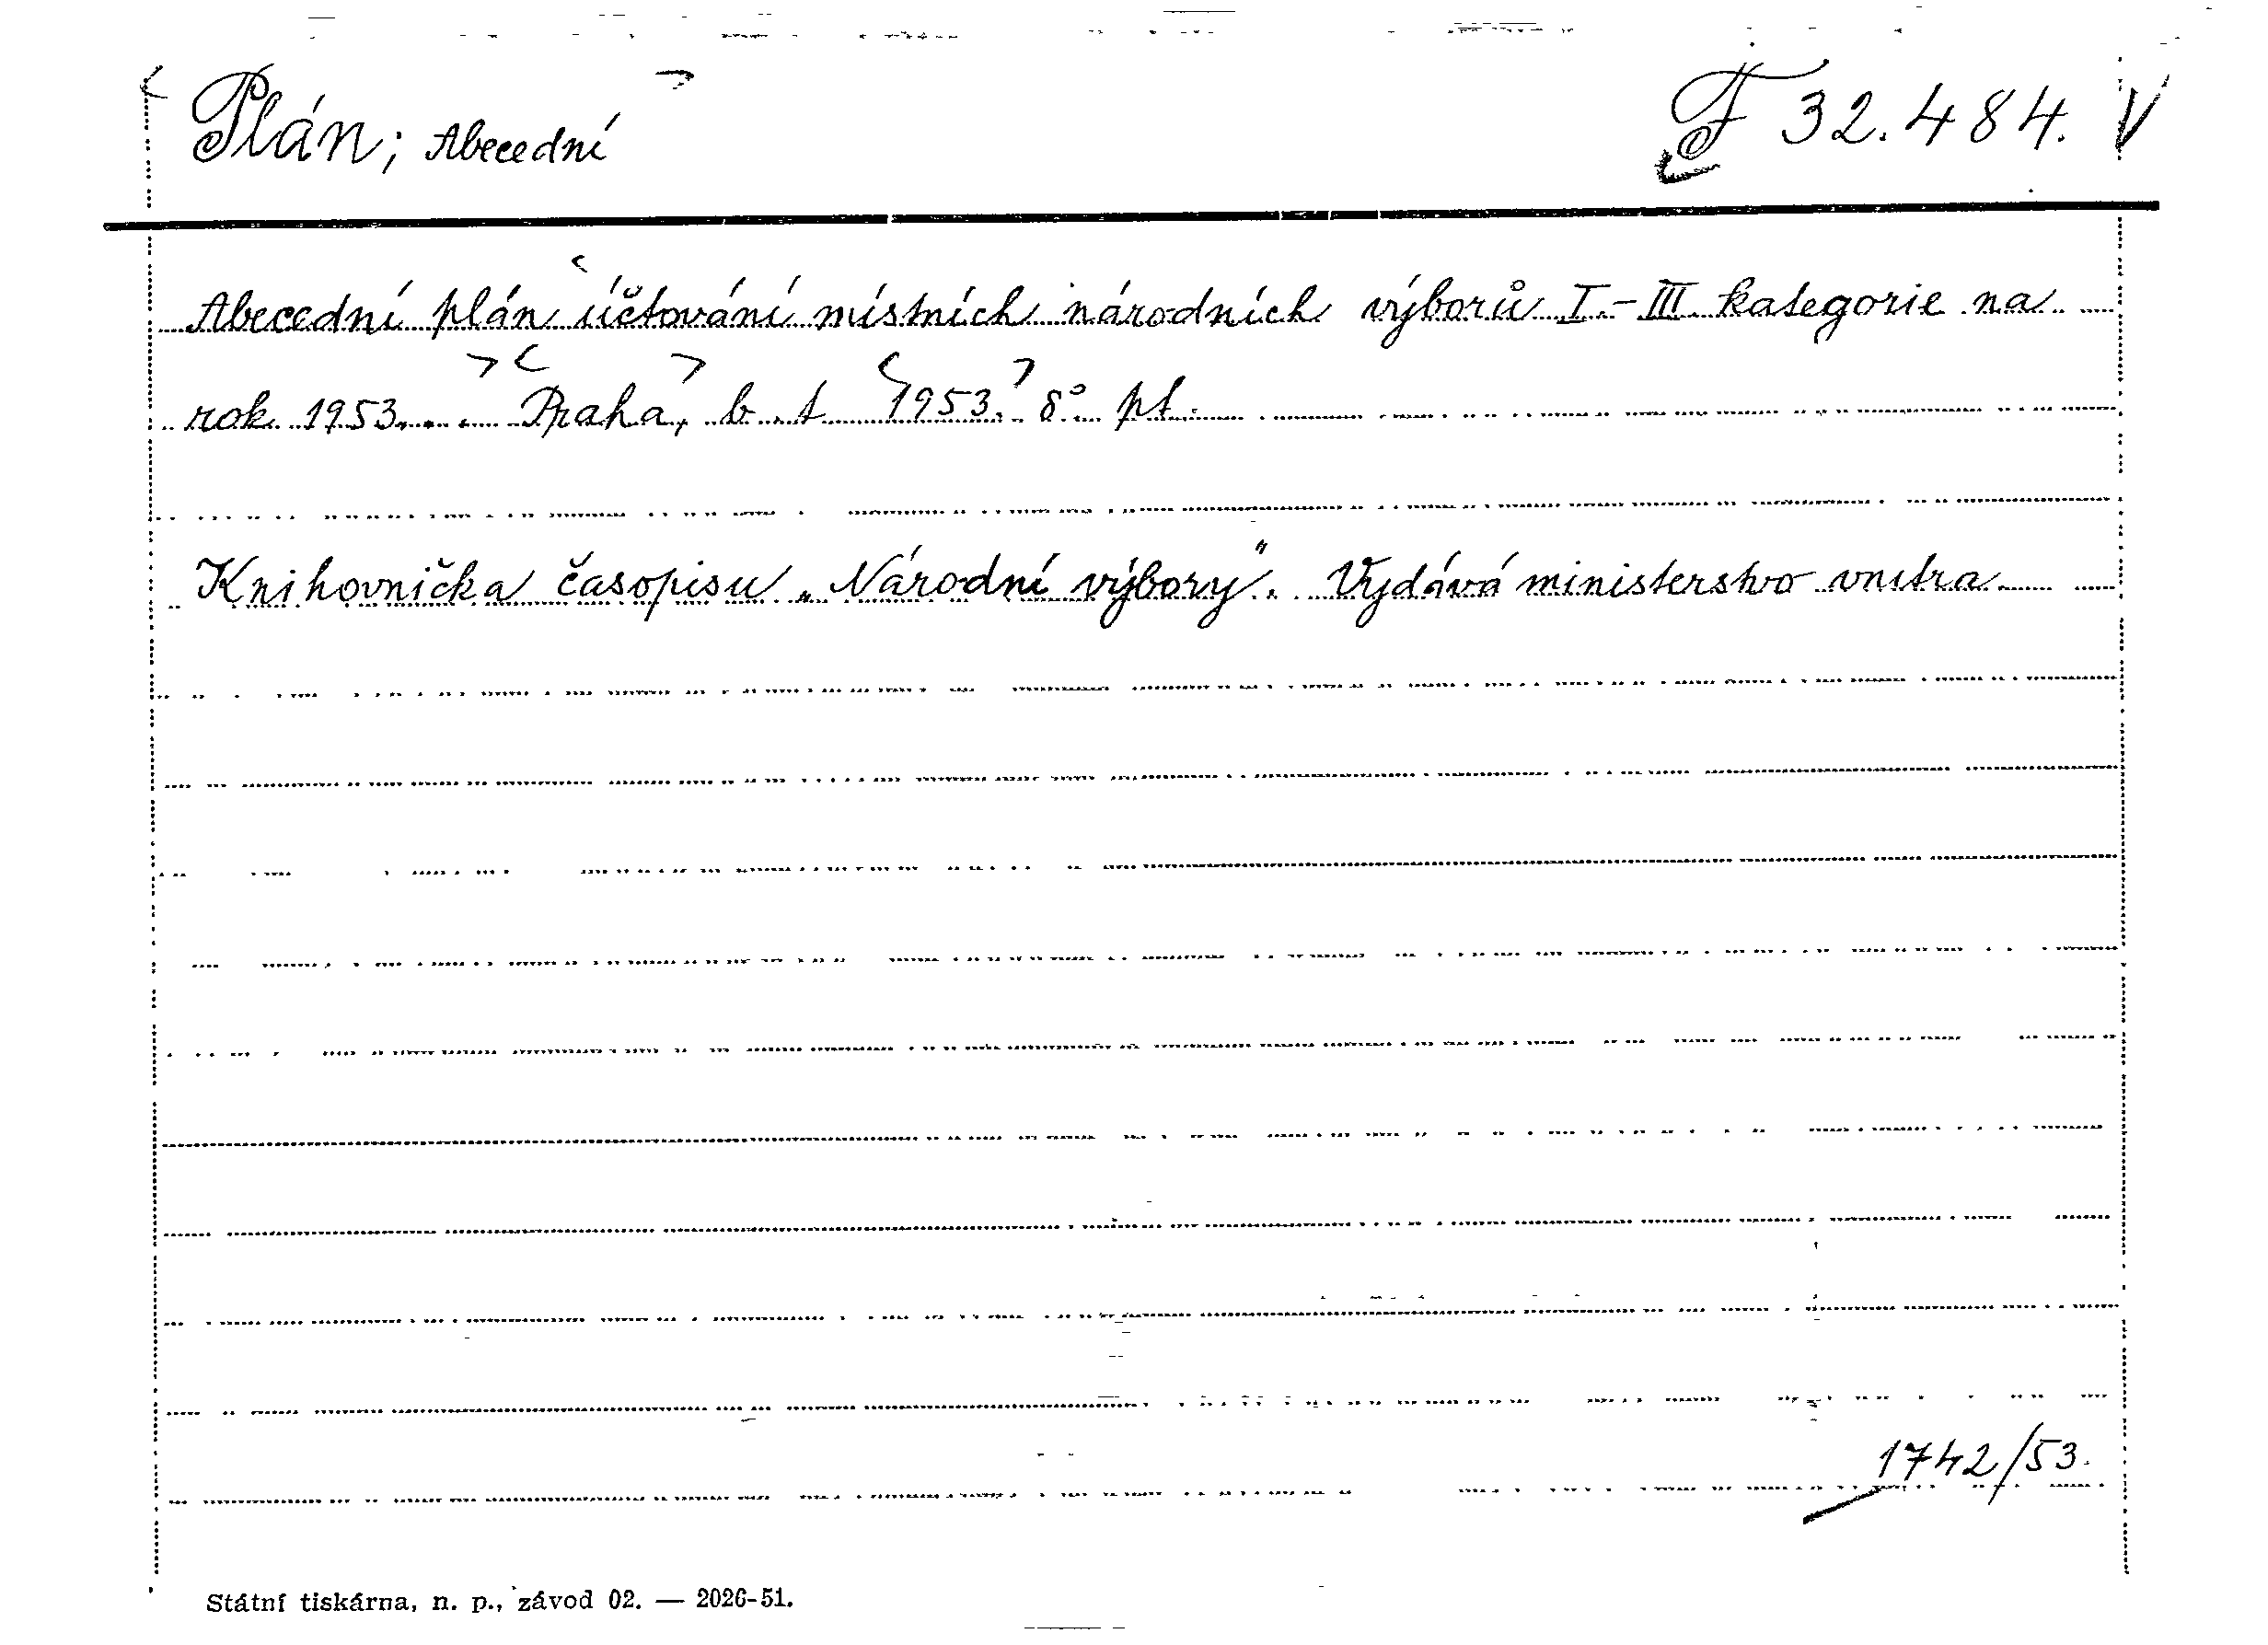 Plán; Abecední F 32.484. V
Abecední plán účtování místních národních výborů I.-III. kategorie na
rok 1953... Praha, b. t. 1953. 8°. pt.
Knihovnička časopisu „Národní výbory“. Vydává ministerstvo vnitra
1742/53.
Státní tiskárna, n. p., závod 02. — 2026-51.